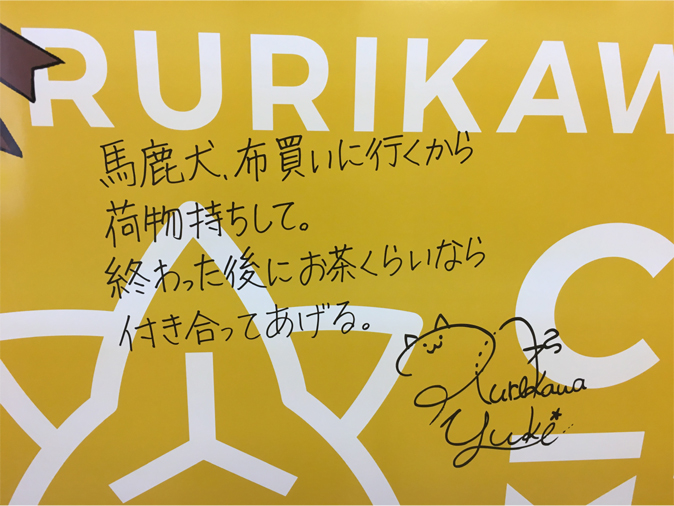 RURIKAW
馬鹿犬、布買いに行くから
荷物持ちして。
終わった後にお茶くらいなら
付き合ってあげる。
C
Rurikawa
Yuki